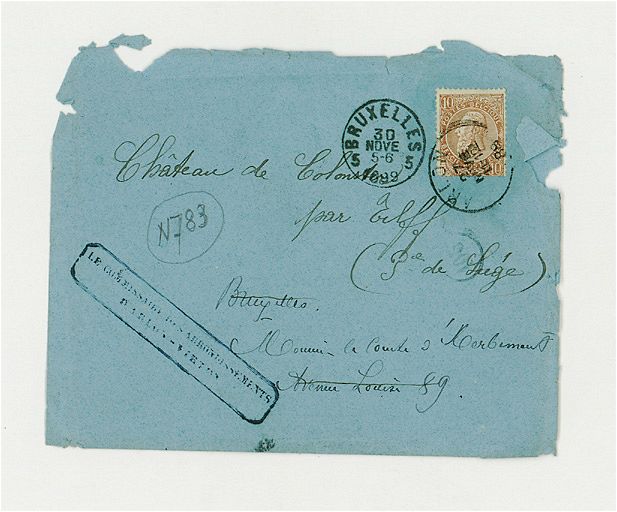 10 10
BRUXELLES
5 5
30
NOVE
5-6
1889
ARLON
Château de
par Tilff
(Pce de Liége)
N783
Bruxelles.
Monsieur le Comte d'
Avenue Louise 89.
LE COMMISSAIRE DES ARRONDISSEMENTS
D'ARLON-VIRTON